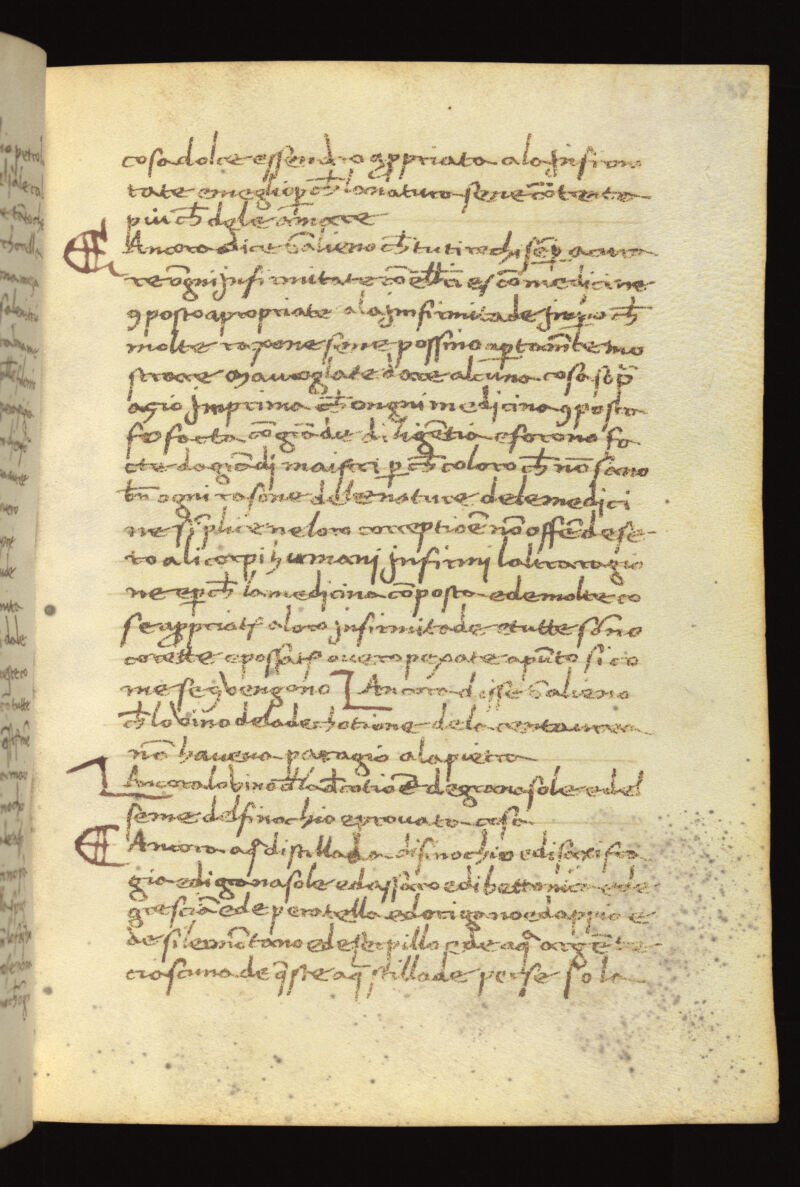 cosa dolce essendo appriata a la infirmi
tate e meglio p̱ch̄ la natura sene cōtenta
piu ch̄ dele amare
Ancora dice Galieno ch̄ tuti rechi sēp̱ a cura
re ōgni infirmitate cō ellr̄i es cō medicine
ꝯposto apropriate ala infirmitade Imp̱o ch̄
molte raxone sene possino ap̱tamēte mo
strare
alcuna cosa
agio Imprima ch̄ ongni medicina ꝯposta
fo facta cō grādi diligētia e forono fa
cte da grādi maistri p̱ ch̄ coloro ch̄ nō sāno
bn̄ ogni rasone dele nature dele medici
ne sīplice ne loro corceptiōe nō offēdese
ro ali corpi humani infirmi laltra ragio
ne e p̱ch̄ la medicina cōposta e de molte co
se appriate a loro infirmitade e tutte sōno
corette e possate overo pexate apūto si co
me se ꝯvengono Ancora disse Galieno
ch̄ lo vino dela dechotione de la centaurea
nō haveva paragio a la pietra
Ancora lo vino d̄la d̄cotiōe de grana sole e del
seme del finochio e provata cosa
Ancora aq̄ distillada di finochio e di saxifra
gia e di grana sole e dassāro e di bettonica e de
gresciōe e de peratella e dorigano e dappio e
de sile mōtano e de serpillo e de aq̄ argēte
ciascuna de q̄ste aq̄ stillade per se sola